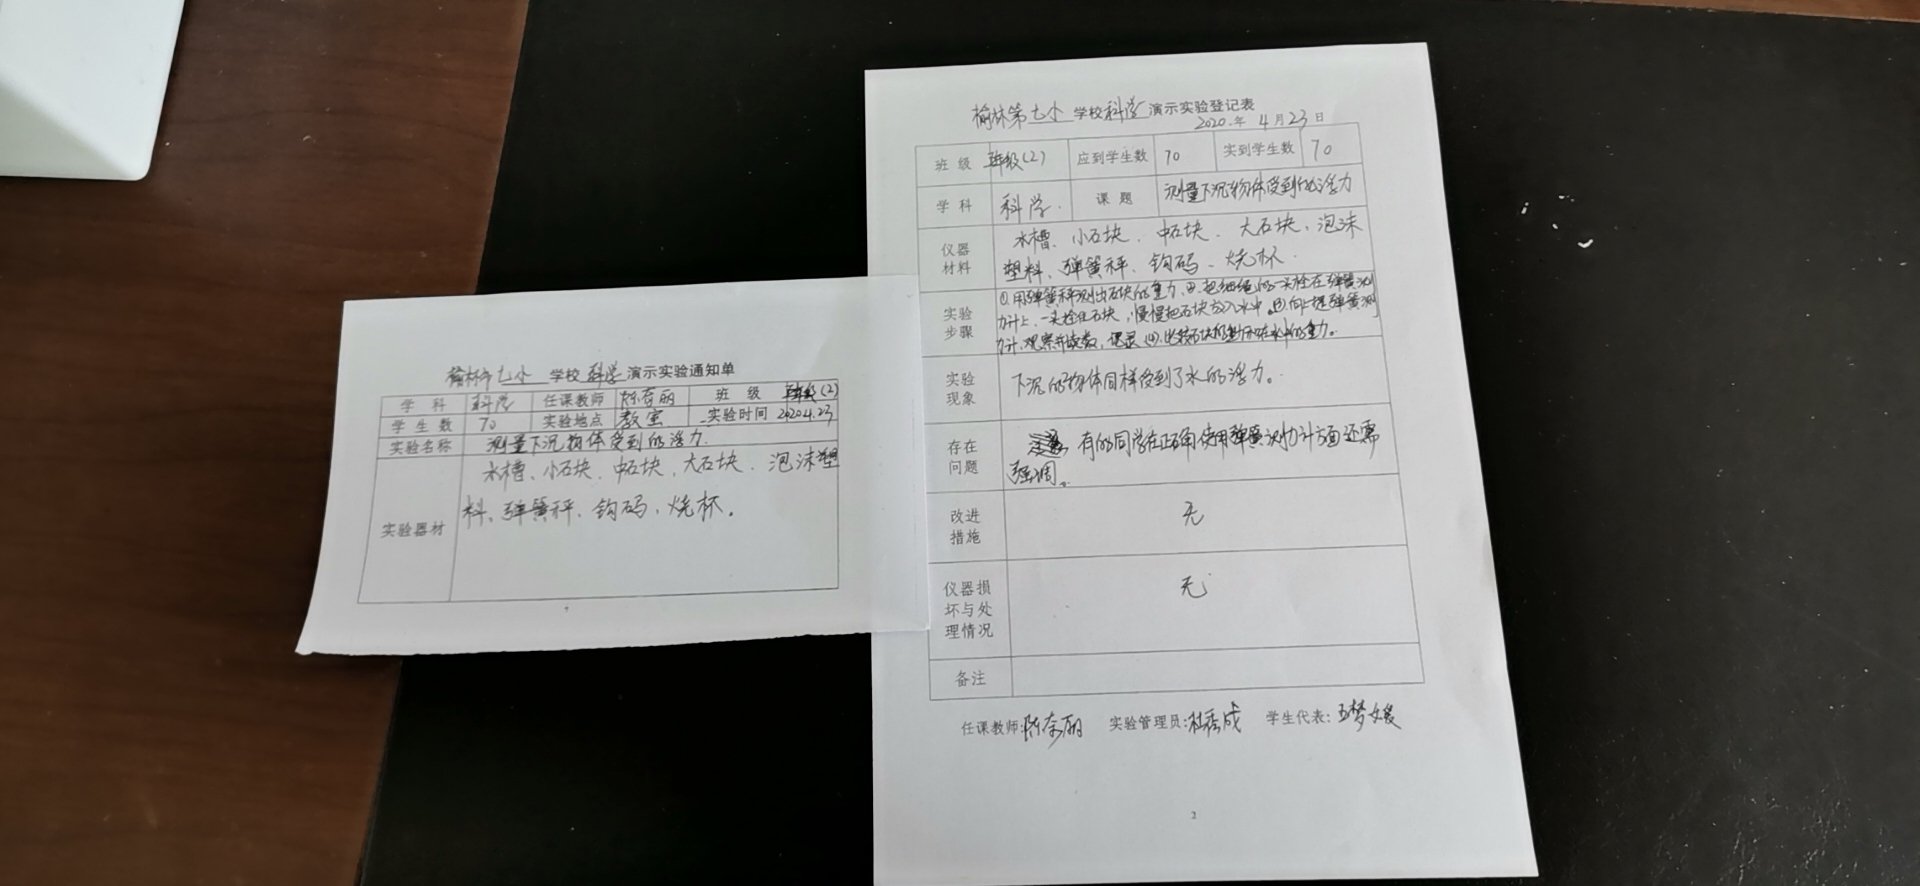 榆林市七小 学校 科学 演示实验通知单
学科 科学 任课教师 陈奋丽 班级 五年级(2)
学生数 70 实验地点 教室 实验时间 2020.4.23
实验名称 测量下沉物体受到的浮力.
水槽、小石块、中石块、大石块、泡沫塑
实验器材 料、弹簧秤、钩码、烧杯。
榆林第七小 学校科学 演示实验登记表
2020.年 4月23日
班级 五年级(2) 应到学生数 70 实到学生数 70
学科 科学. 课题 测量下沉物体受到的浮力
仪器材料 水槽、小石块、中石块、大石块、泡沫
塑料、弹簧秤、钩码、烧杯.
实验步骤 ①用弹簧秤测出石块的重力.②.把细绳的一头拴在弹簧测
力计上,一头拴住石块,慢慢把石块放入水中。③.向上提弹簧测
力计、观察并读数,记录(4).比较石块的重力和在水中的重力。
实验现象 下沉的物体同样受到了水的浮力。
存在问题 有的同学在正确使用弹簧测力计方面还需
强调。
改进措施 无
仪器损坏与处理情况 无
备注
任课教师:陈奋丽 实验管理员:杜秀成 学生代表:王梦媛
2